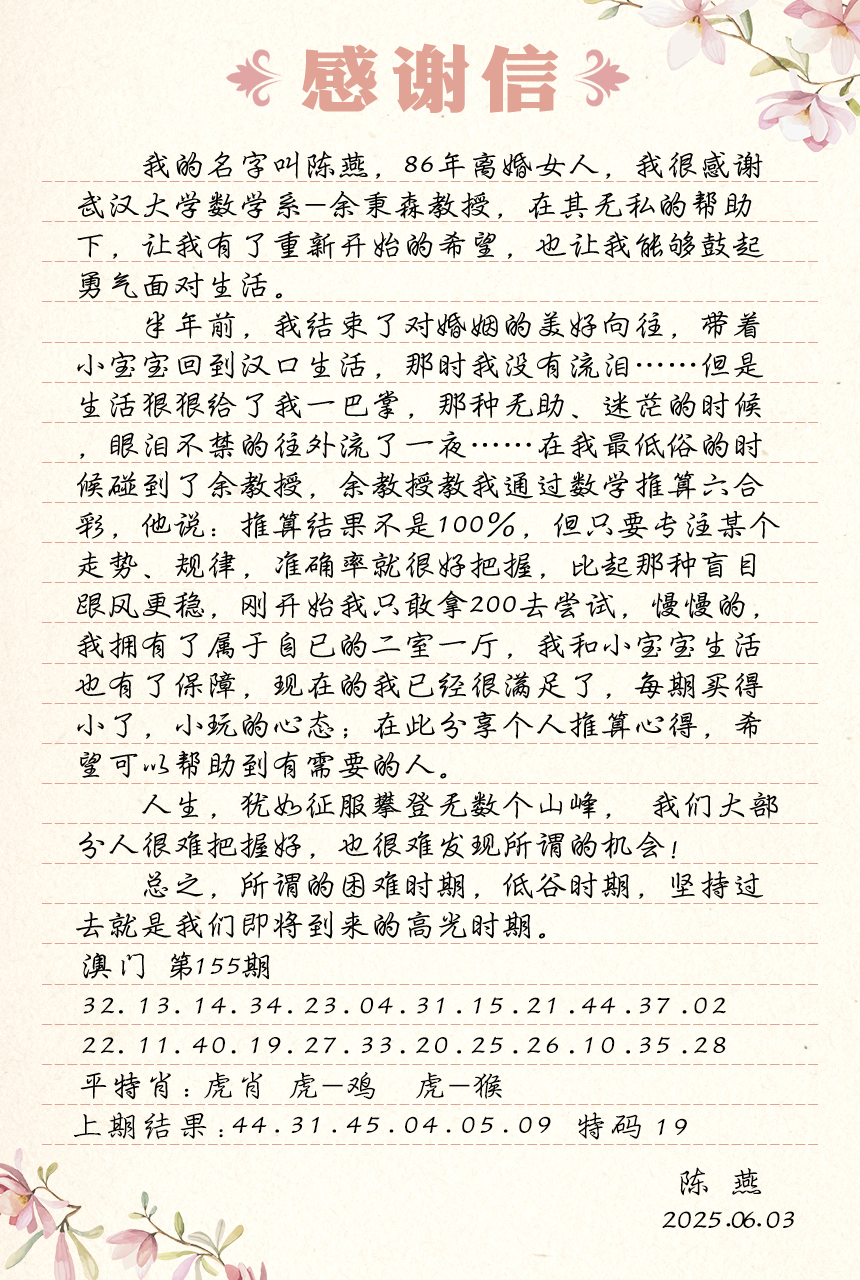 感谢信
我的名字叫陈燕，86年离婚女人，我很感谢
武汉大学数学系—余秉森教授，在其无私的帮助
下，让我有了重新开始的希望，也让我能够鼓起
勇气面对生活。
半年前，我结束了对婚姻的美好向往，带着
小宝宝回到汉口生活，那时我没有流泪……但是
生活狠狠给了我一巴掌，那种无助、迷茫的时候
，眼泪不禁的往外流了一夜……在我最低俗的时
候碰到了余教授，余教授教我通过数学推算六合
彩，他说：推算结果不是100%，但只要专注某个
走势、规律，准确率就很好把握，比起那种盲目
跟风更稳，刚开始我只敢拿200去尝试，慢慢的，
我拥有了属于自已的二室一厅，我和小宝宝生活
也有了保障，现在的我已经很满足了，每期买得
小了，小玩的心态；在此分享个人推算心得，希
望可以帮助到有需要的人。
人生，犹如征服攀登无数个山峰， 我们大部
分人很难把握好，也很难发现所谓的机会！
总之，所谓的困难时期，低谷时期，坚持过
去就是我们即将到来的高光时期。
澳门 第155期
32.13.14.34.23.04.31.15.21.44.37.02
22.11.40.19.27.33.20.25.26.10.35.28
平特肖：虎肖 虎—鸡 虎—猴
上期结果：44.31.45.04.05.09 特码 19
陈 燕
2025.06.03